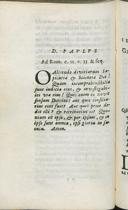 D. PAVLVS
Ad Rom. c. 11. v. 33. & seq.
O Altitudo diuitiarum sa-
pientiæ & scientiæ Dei!
Quàm incomprehensibilia
sunt iudicia eius, & inuestigabi-
les viæ eius! Quis enim cognouit
sensum Domini? aut quis consilia-
rius eius fuit? Aut quis prior de-
dit illi, & retribuetur ei? Quo-
niam ex ipso, & per ipsum, & in
ipso sunt omnia, ipsi gloria in sæ-
cula. Amen.